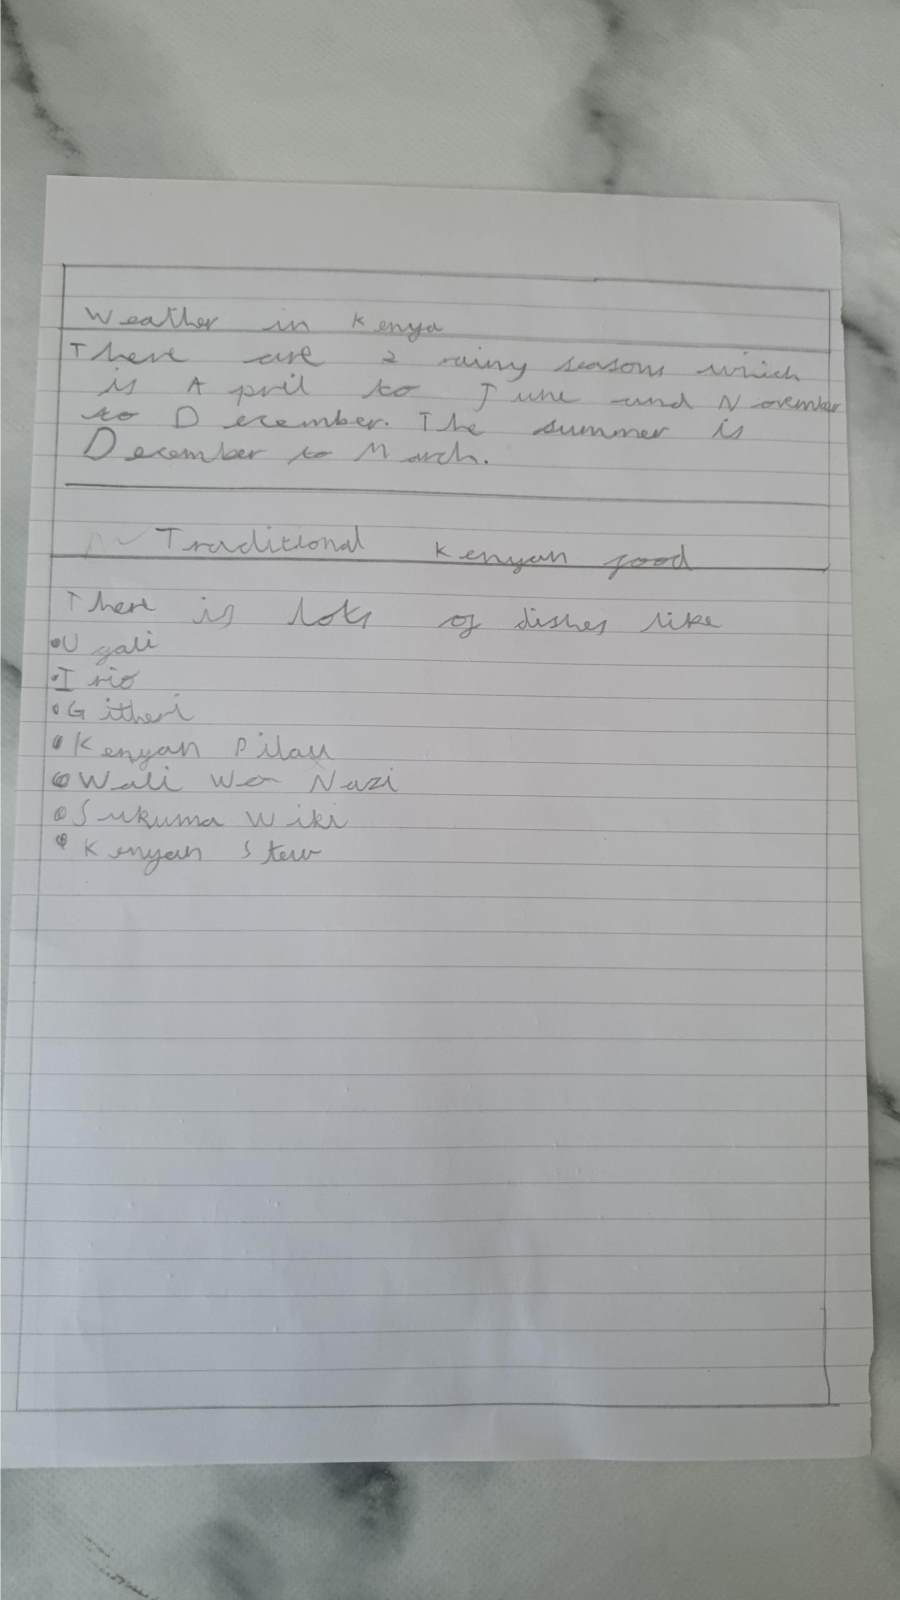 Weather in Kenya
There are 2 rainy seasons which
is April to June and November
to December. The summer is
December to March.
Traditional Kenyan food
There is lots of dishes like
• Ugali
• Irio
• Githeri
• Kenyan Pilau
• Wali Wa Nazi
• Sukuma Wiki
• Kenyan Stew